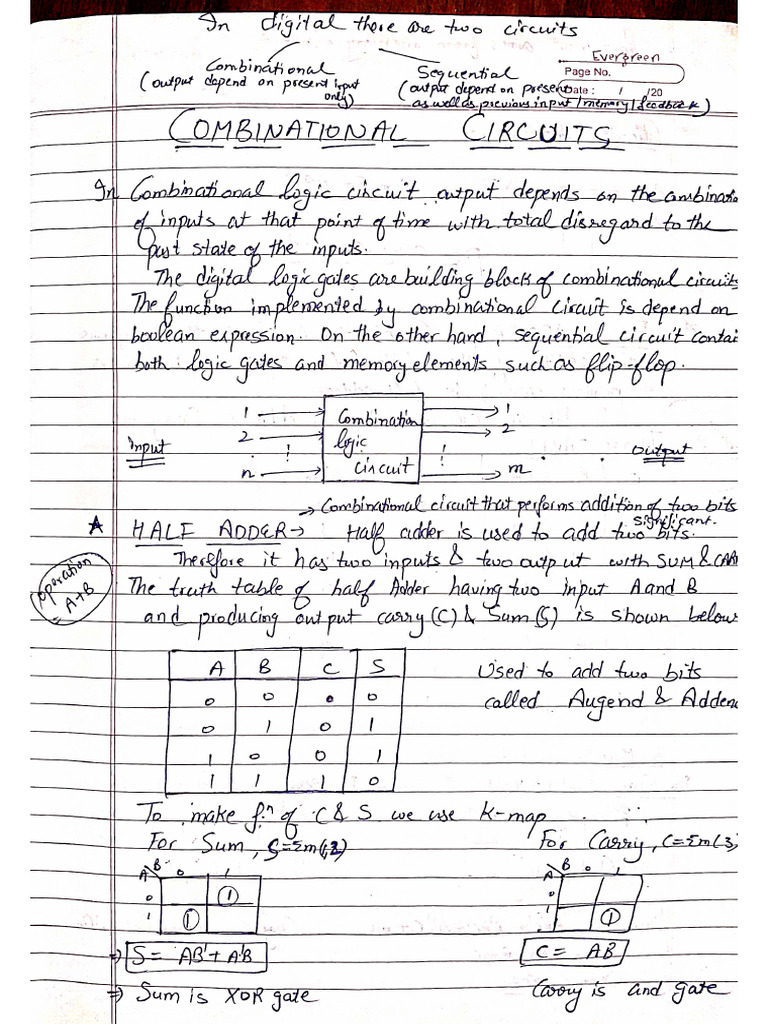 In digital there are two circuits
Combinational
(output depend on present input only)
Sequential
(output depend on present as well as previous input / memory / feedback)
Evergreen
Page No.
Date : / /20
COMBINATIONAL CIRCUITS
In Combinational logic circuit output depends on the combinatio
of inputs at that point of time with total disregard to the
past state of the inputs.
The digital logic gates are building block of combinational circuits
The function implemented by combinational circuit is depend on
boolean expression. On the other hand, sequential circuit contai
both logic gates and memory elements such as flip-flop.
1 Combination 1
2 logic 2
Input ! ! Output
n circuit m
→ Combinational circuit that performs addition of two bits
HALF ADDER → Half adder is used to add two significant bits.
Therefore it has two inputs & two output with SUM & CAR
Operation = A+B
The truth table of half Adder having two input A and B
and producing output carry (C) & Sum (S) is shown below
A B C S
0 0 0 0
0 1 0 1
1 0 0 1
1 1 1 0
Used to add two bits
called Augend & Adden
To make f.n of C & S we use K-map
For Sum, S=Σm(1,2)
A B 0 1
0 1
1 1
⇒ S = AB' + A'B
⇒ Sum is XOR gate
For Carry, C=Σm(3)
A B 0 1
0
1 1
C = AB
Carry is and gate